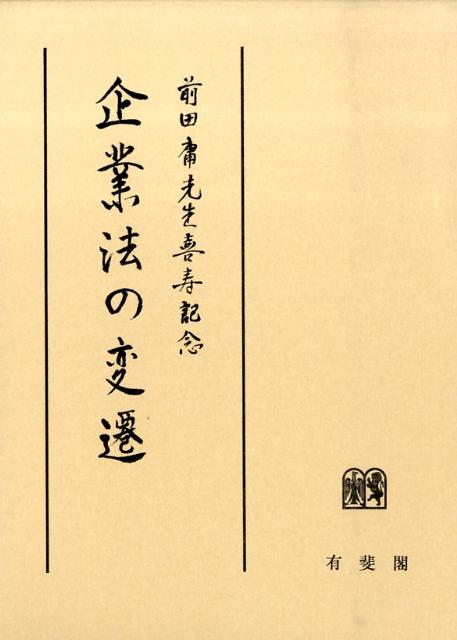 前田庸先生喜寿記念
企業法の変遷
有斐閣